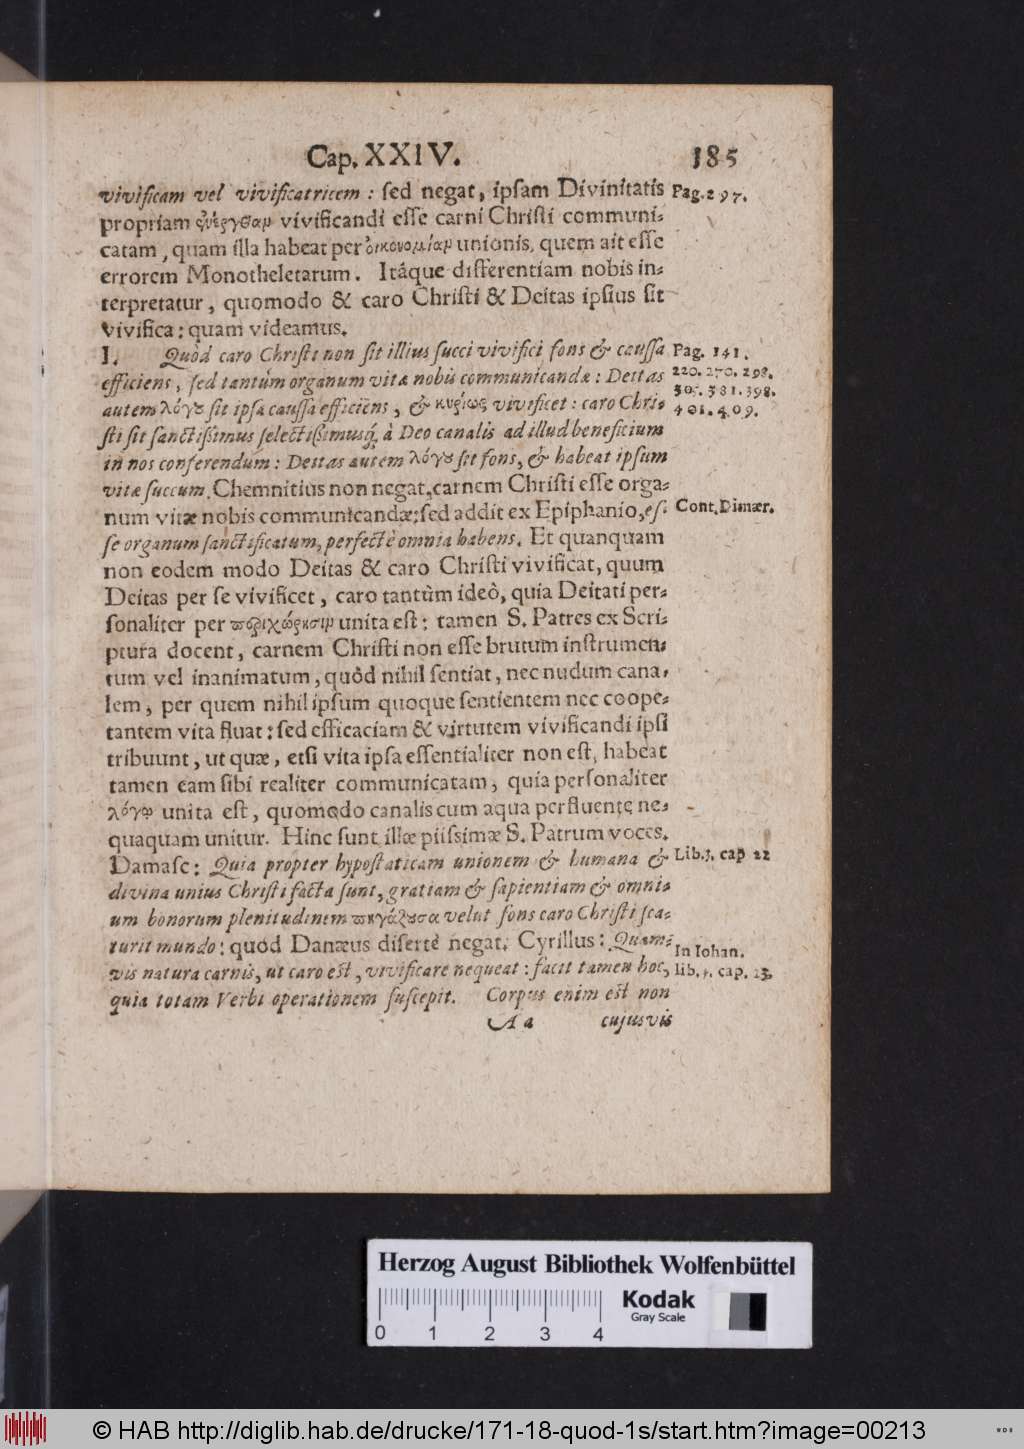 Cap. XXIV. 185
vivificam vel vivificatricem: sed negat, ipsam Divinitatis Pag. 297.
propriam ἐνέργειαν vivificandi esse carni Christi communi-
catam, quam illa habeat per οἰκονομίαν unionis, quem ait esse
errorem Monotheletarum. Itáque differentiam nobis in-
terpretatur, quomodo & caro Christi & Deitas ipsius sit
vivifica: quam videamus.
I. Quòd caro Christi non sit illius succi vivifici fons & caussa Pag. 141.
efficiens, sed tantùm organum vitæ nobis communicandæ: Deitas 220. 270. 298.
autem λόγου sit ipsa caussa efficiens, & κυρίως vivificet: caro Chri- 305. 381. 398.
sti sit sanctißimus selectißimusq́; à Deo canalis ad illud beneficium 401. 409.
in nos conferendum: Deitas autem λόγου sit fons, & habeat ipsum
vitæ succum. Chemnitius non negat, carnem Christi esse orga-
num vitæ nobis communicandæ: sed addit ex Epiphanio, es- Cont. Dimær.
se organum sanctificatum, perfectè omnia habens. Et quanquam
non eodem modo Deitas & caro Christi vivificat, quum
Deitas per se vivificet, caro tantùm ideò, quia Deitati per-
sonaliter per περιχώρησιν unita est: tamen S. Patres ex Scri-
ptura docent, carnem Christi non esse brutum instrumen-
tum vel inanimatum, quòd nihil sentiat, nec nudum cana-
lem, per quem nihil ipsum quoque sentientem nec coope-
tantem vita fluat: sed efficaciam & virtutem vivificandi ipsi
tribuunt, ut quæ, etsi vita ipsa essentialiter non est, habeat
tamen eam sibi realiter communicatam, quia personaliter
λόγῳ unita est, quomodo canalis cum aqua perfluente ne-
quaquam unitur. Hinc sunt illæ piissimæ S. Patrum voces.
Damasc: Quia propter hypostaticam unionem & humana & Lib. 3. cap 22
divina unius Christi facta sunt, gratiam & sapientiam & omni-
um bonorum plenitudinem πηγάζουσα velut fons caro Christi sca-
turit mundo: quod Danæus disertè negat. Cyrillus: Quam- In Iohan.
vis natura carnis, ut caro est, vivificare nequeat: facit tamen hoc, lib. 4. cap. 23.
quia totam Verbi operationem suscepit. Corpus enim est non
Aa cujusvis
Herzog August Bibliothek Wolfenbüttel
Kodak
Gray Scale
0 1 2 3 4
© HAB http://diglib.hab.de/drucke/171-18-quod-1s/start.htm?image=00213